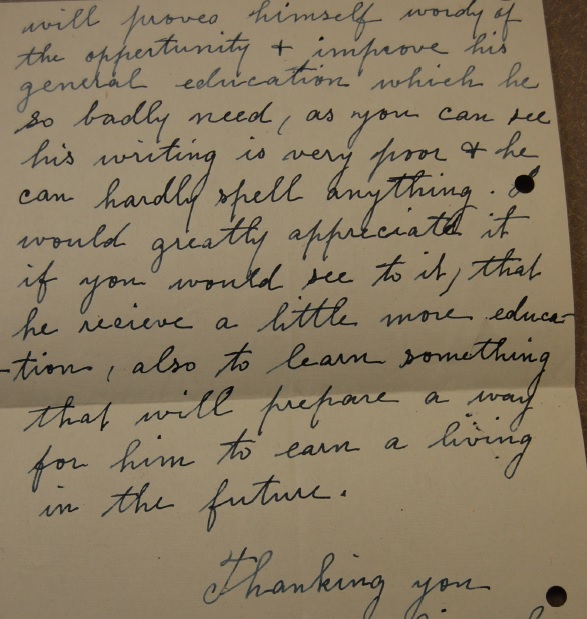 will proves himself wordy of
the oppertunity + improve his
general education which he
so badly need, as you can see
his writing is very poor & he
can hardly spell anything. I
would greatly appreciate it
if you would see to it, that
he recieve a little more educa-
-tion, also to learn something
that will prepare a way
for him to earn a living
in the future.
Thanking you